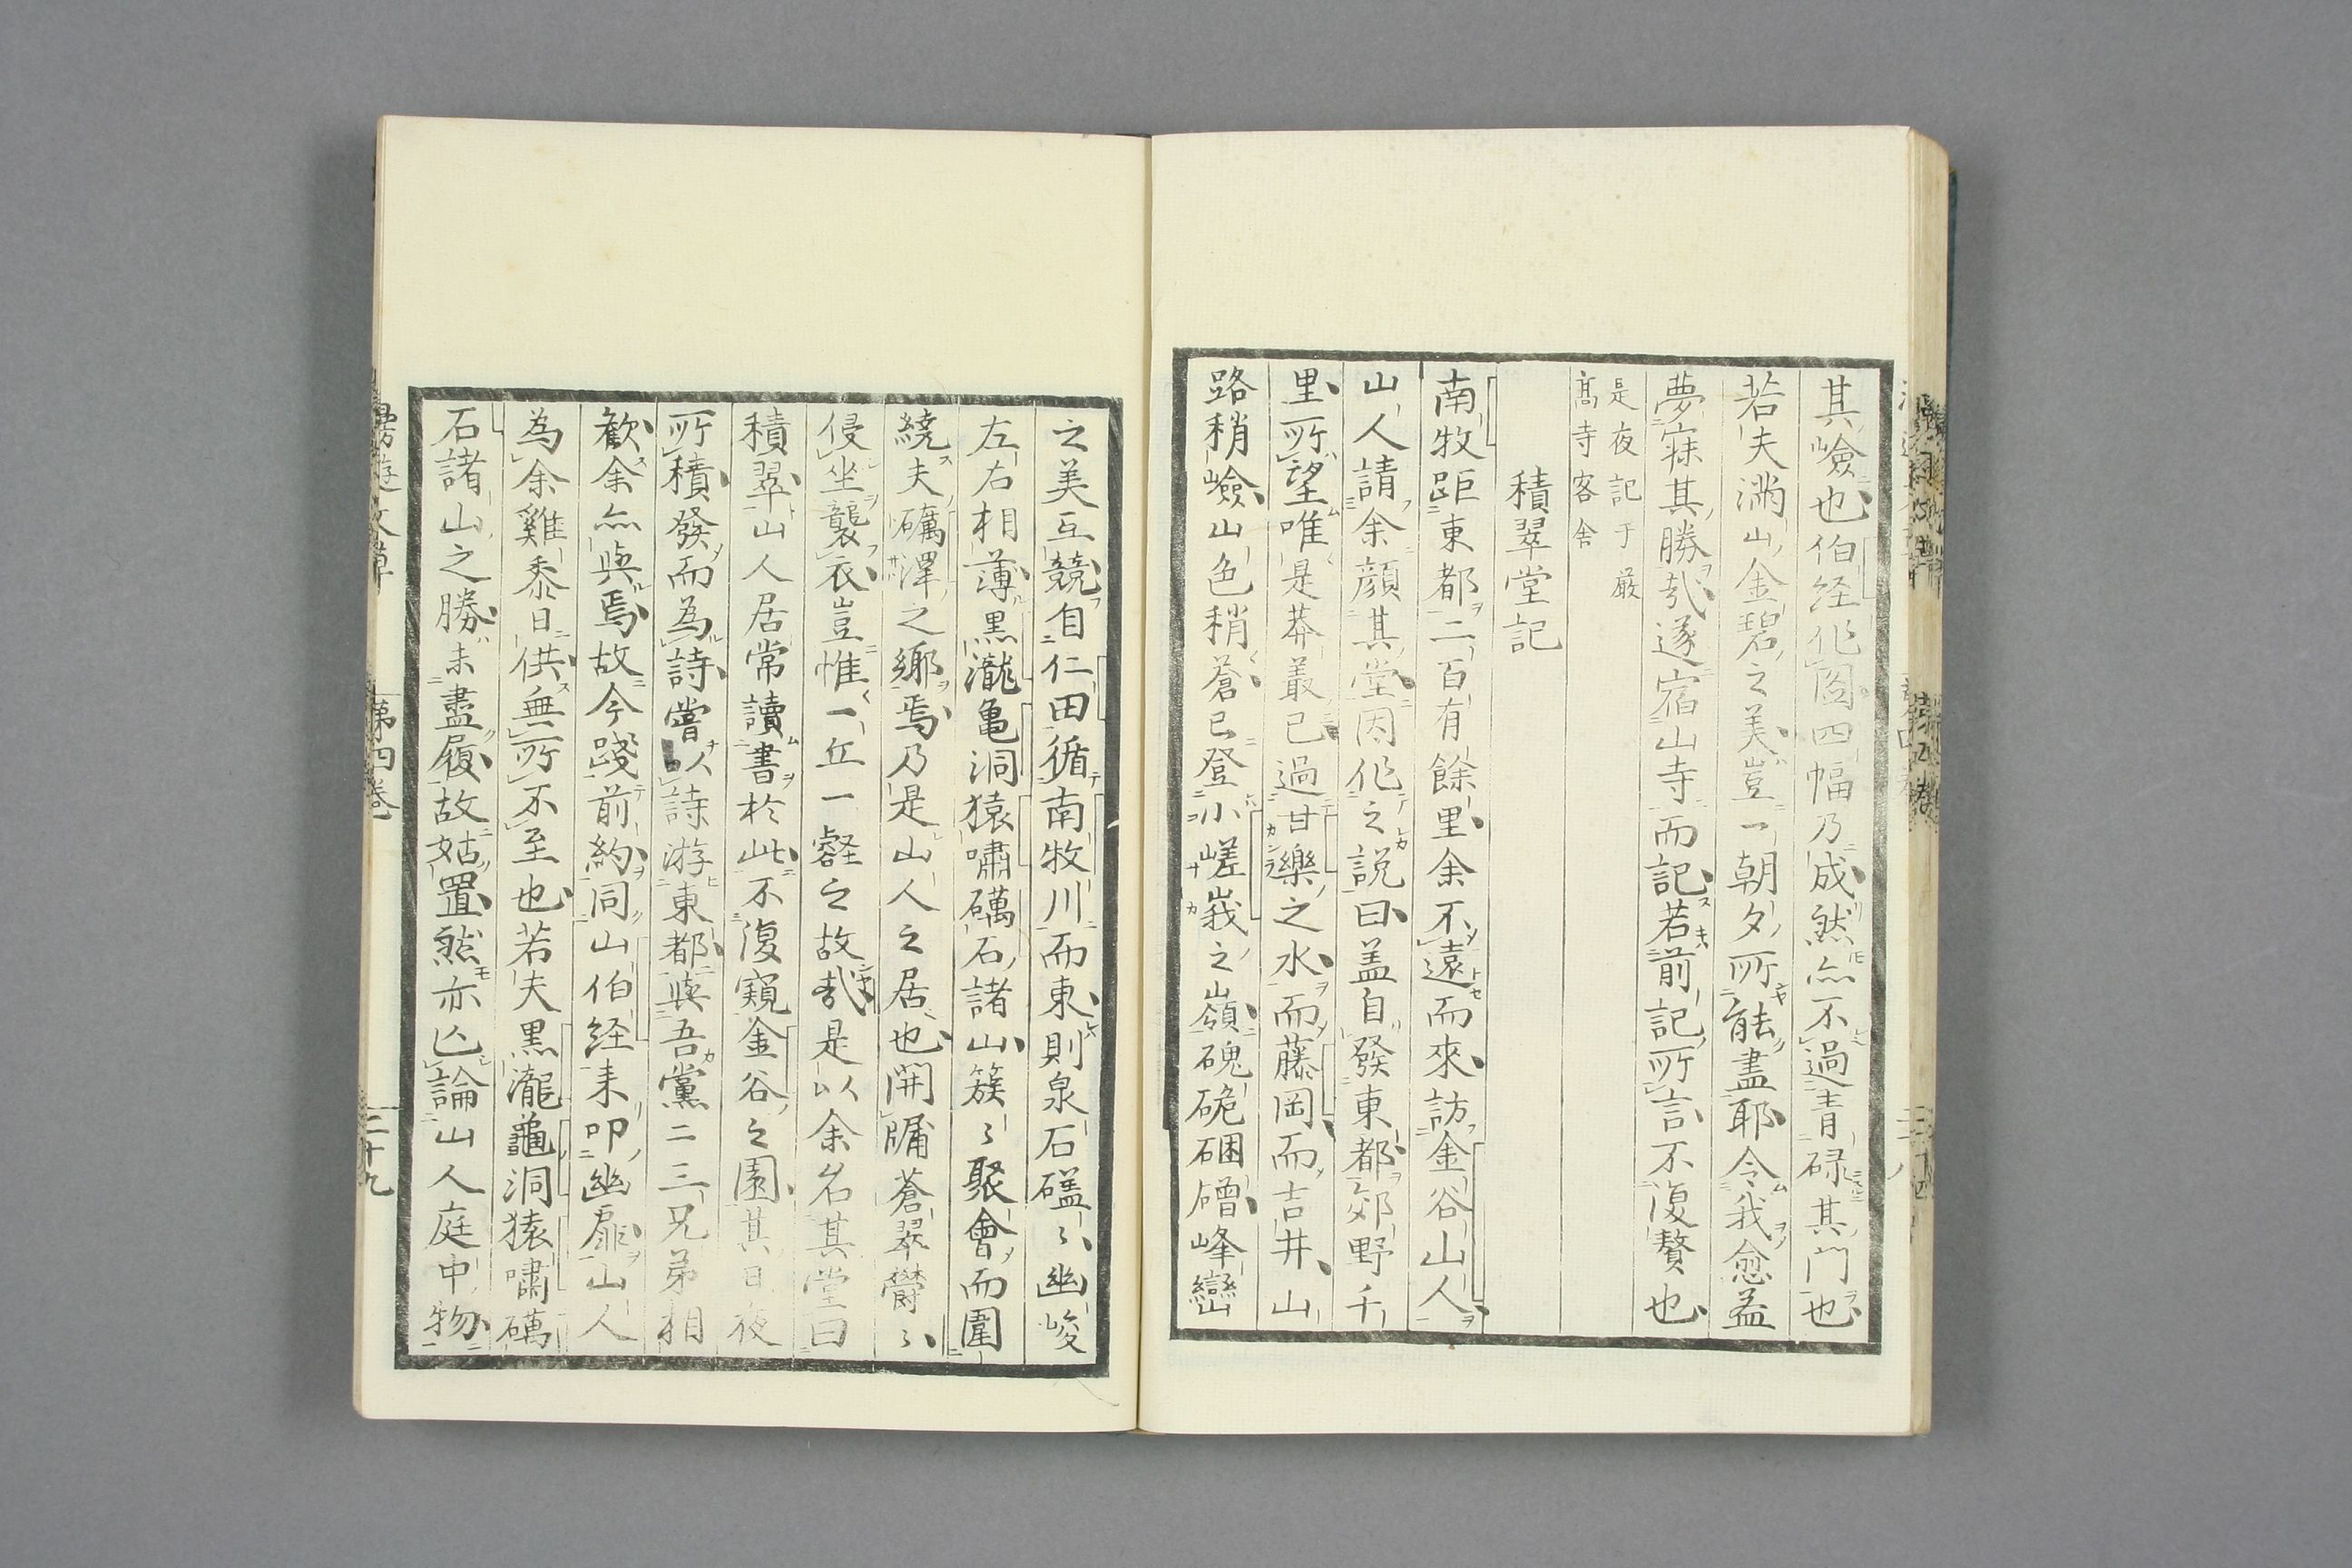 其嶮也伯経作図四幅乃成然亦不過青碌其門也
若夫満山金碧之美豈一朝夕所能盡耶令我愈益
夢寐其勝哉遂宿山寺而記若前記所言不復贅也
是夜記于厳
髙寺客舎
積翠堂記
南牧距東都二百有餘里余不遠而來訪金谷山人
山人請余顔其堂因作之説曰盖自發東都郊野千
里所望唯是莽叢已過甘樂之水而藤岡而吉井山
路稍嶮山色稍蒼已登小嵯峩之嶺磈硊硱磳峰巒
之美互競自仁田循南牧川而東則泉石礚〻幽峻
左右相薄黒瀧亀洞猿嘯礪石諸山簇〻聚會而圍
繞夫礪澤之郷焉乃是山人之居也開牖蒼翠欝〻
侵坐襲衣豈惟一丘一壑之故哉是以余名其堂曰
積翠山人居常讀書於此不復窺金谷之園其日夜
所積發而為詩嘗以詩游東都與吾黨二三兄弟相
歓余亦與焉故今踐前約同山伯経来叩幽扉山人
為余雞黍日供無所不至也若夫黒瀧龜洞猿嘯礪
石諸山之勝未盡履故姑置然亦亡論山人庭中物
游文草
第四巻
二十九